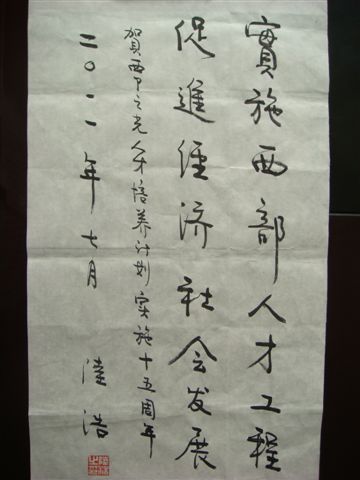 實施西部人才工程
促進经济社会发展
賀西部之光人才培养计划实施十五周年
二〇一一年七月
陸浩